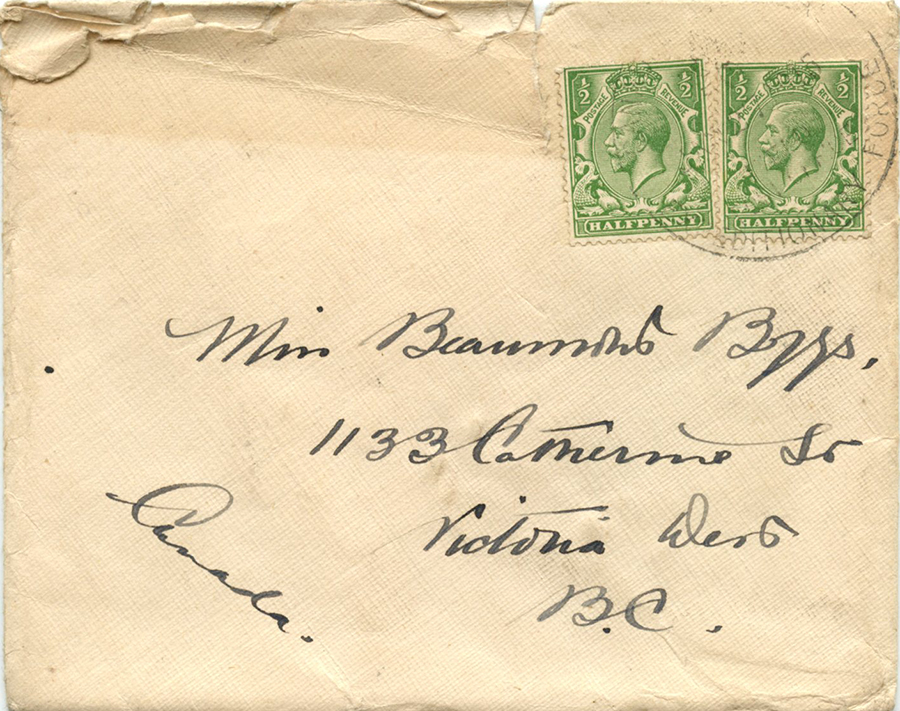 ½ ½
POSTAGE REVENUE
HALFPENNY
½ ½
POSTAGE REVENUE
HALFPENNY
FORCE
Miss Beaumont Boggs,
1133 Catherine St
Victoria West
B.C.
Canada.